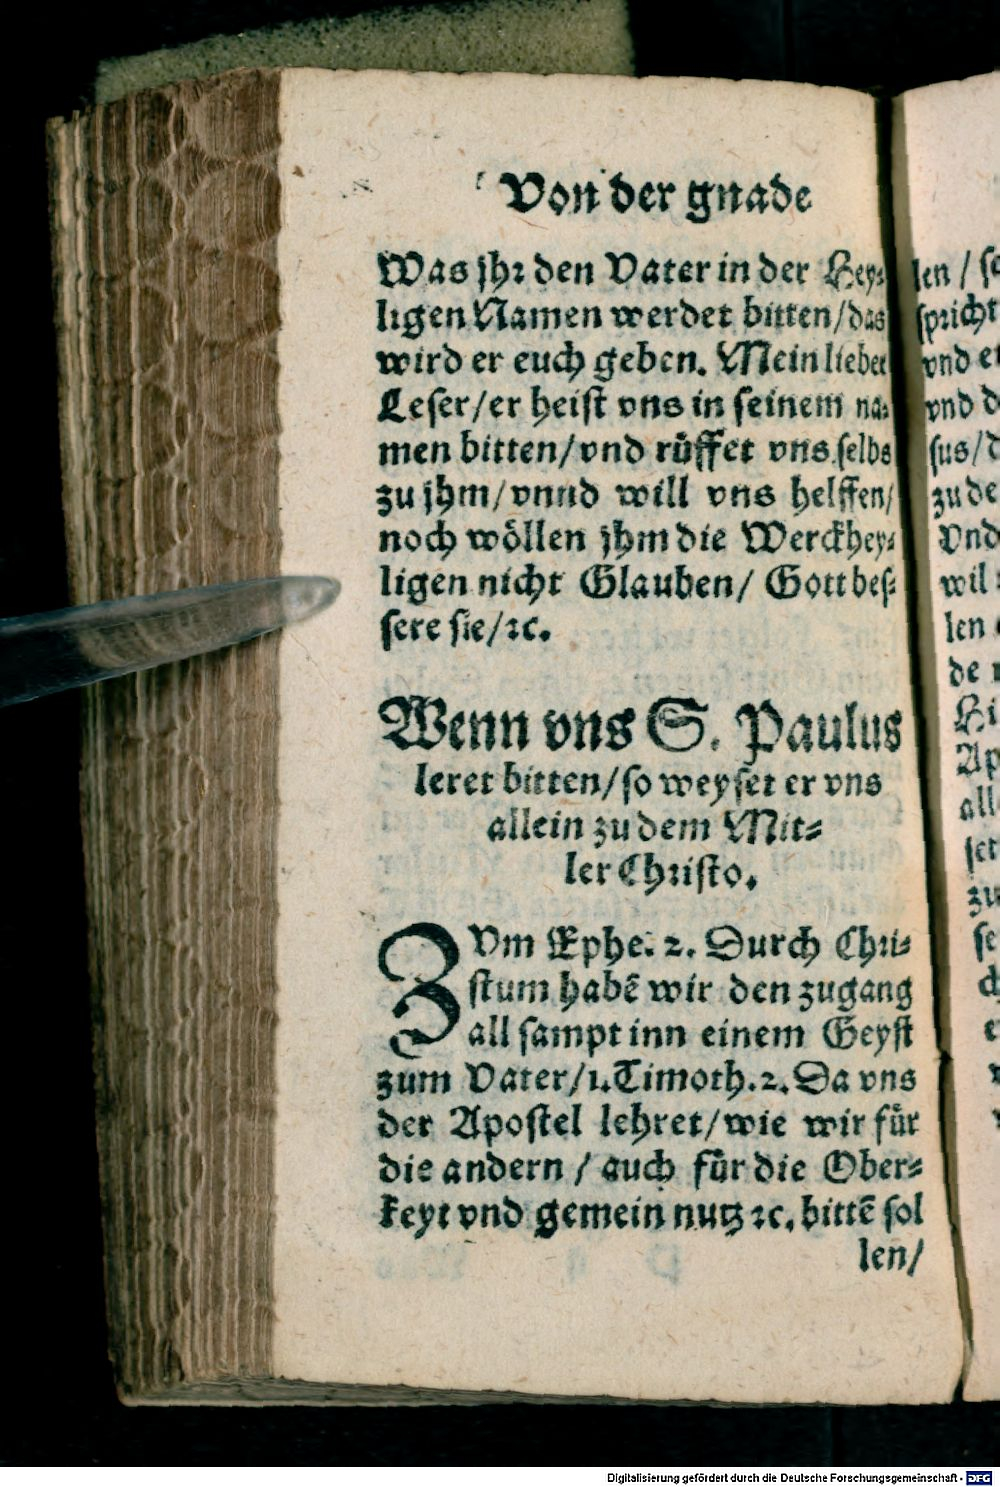 Von der gnade
Was jhr den Vater in der Hey-
ligen Namen werdet bitten/das
wird er euch geben. Mein lieber
Leser/er heist vns in seinem na-
men bitten/vnd rüffet vns selbs
zu jhm/vnnd will vns helffen/
noch wöllen jhm die Werckhey-
ligen nicht Glauben/ Gott bes-
sere sie/ꝛc.
Wenn vns S. Paulus
leret bitten/so weyset er vns
allein zu dem Mit-
ler Christo.
ZVm Ephe. 2. Durch Chri-
stum habē wir den zugang
all sampt inn einem Geyst
zum Vater/1.Timoth.2. Da vns
der Apostel lehret/wie wir für
die andern / auch für die Ober-
keyt vnd gemein nutz ꝛc. bittē sol
len/
len /
spricht
vnd
vnd
sus/
zu de
Vnd
wil
len
de
all
set
zu
se
Digitalisierung gefördert durch die Deutsche Forschungsgemeinschaft - DFG